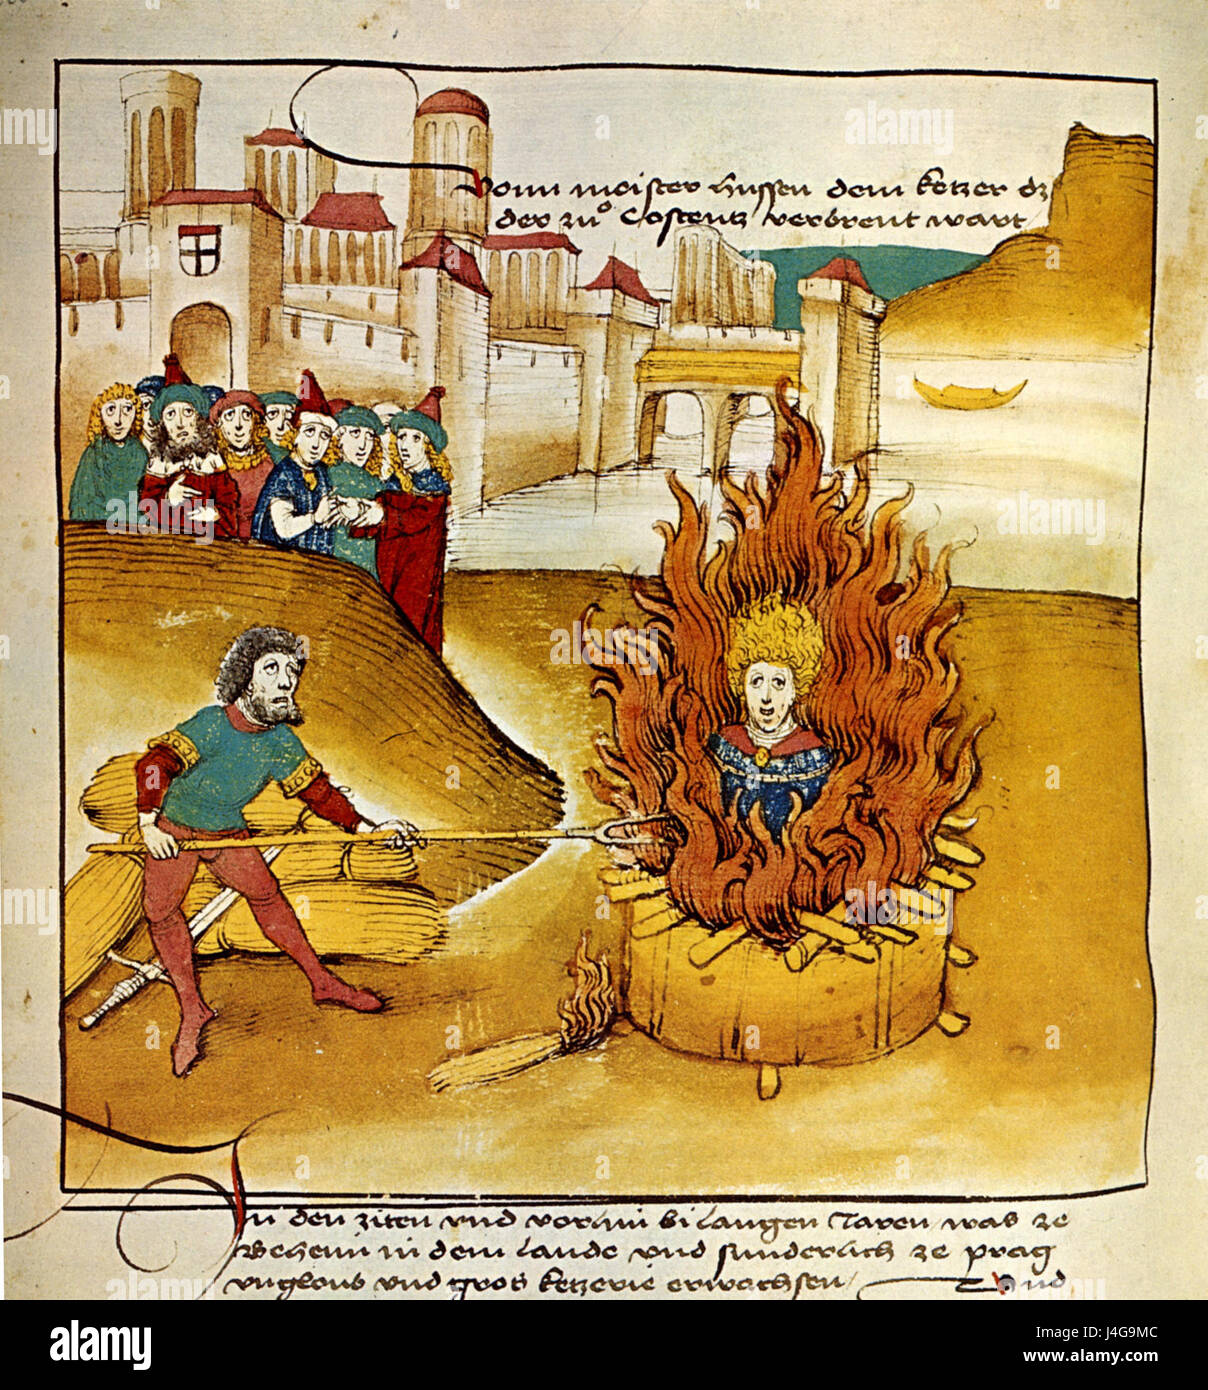 Vonn meister hussen dem ketzer dz
der zuͦ Costentz verbrent wart
In den ziten und vormin bi langen Jaren was ze
Behem in dem lande und sunderlich ze prag
ungloub und gros ketzerie erwachsen
Und
alamy
alamy stock photo
J4G9MC
www.alamy.com